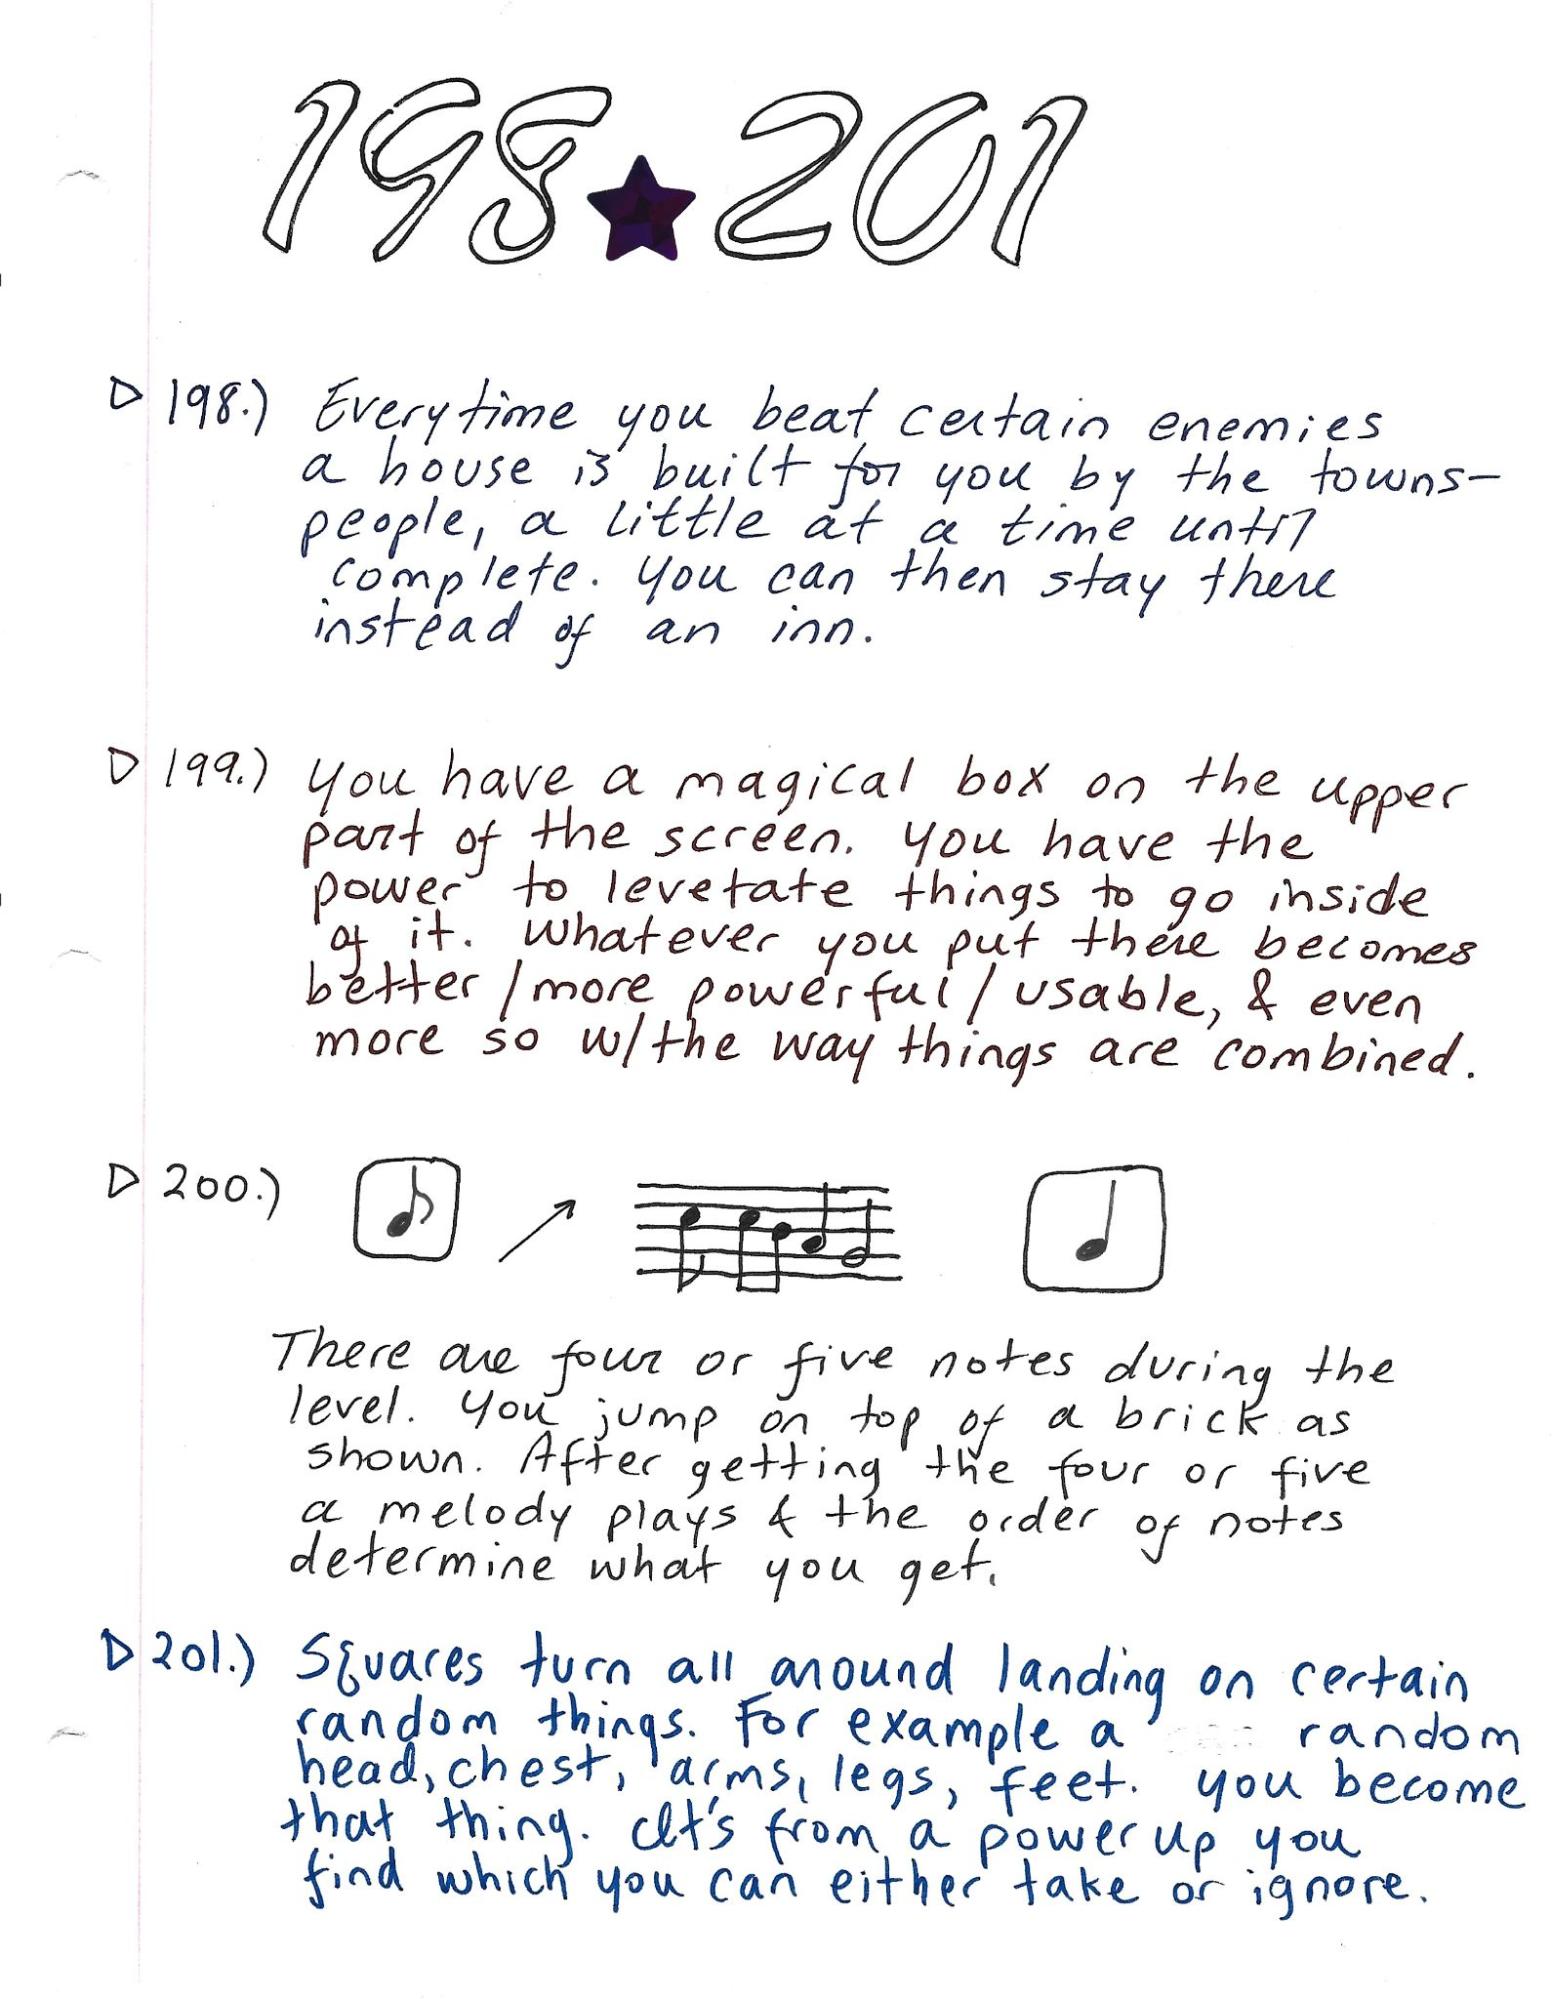 198★201
▷ 198.) Everytime you beat certain enemies
a house is built for you by the towns-
people, a little at a time until
complete. You can then stay there
instead of an inn.
▷ 199.) You have a magical box on the upper
part of the screen. You have the
power to levetate things to go inside
of it. Whatever you put there becomes
better/more powerful/usable, & even
more so w/the way things are combined.
▷ 200.)
There are four or five notes during the
level. You jump on top of a brick as
shown. After getting the four or five
a melody plays & the order of notes
determine what you get.
▷ 201.) Squares turn all around landing on certain
random things. For example a random
head, chest, arms, legs, feet. You become
that thing. It's from a power up you
find which you can either take or ignore.